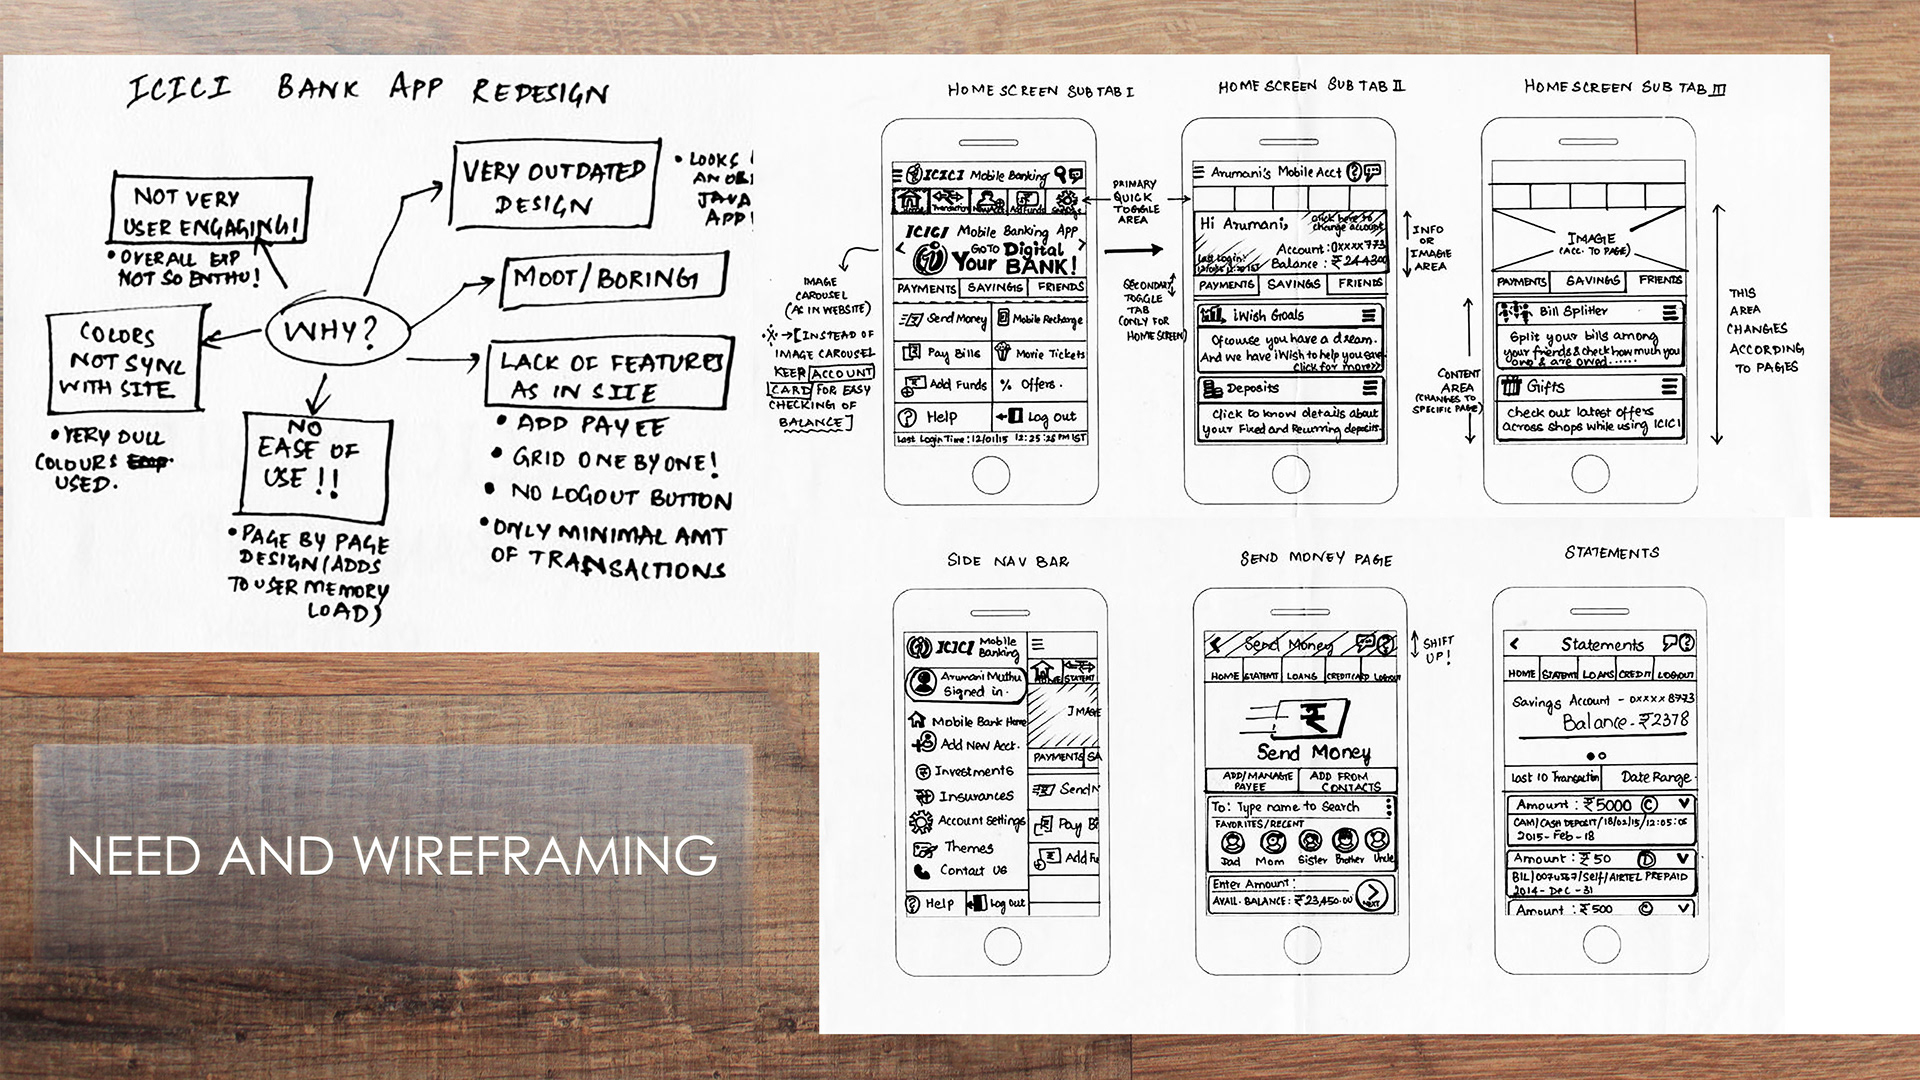 ICICI BANK APP REDESIGN
NOT VERY
USER ENGAGING!
• OVERALL EXP
NOT SO ENTHU!
VERY OUTDATED
DESIGN
• LOOKS
JAVA
APP!
MOOT/BORING
WHY?
COLORS
NOT SYNC
WITH SITE
• VERY DULL
COLOURS
USED.
NO
EASE OF
USE !!
• PAGE BY PAGE
DESIGN (ADDS
TO USER MEMORY
LOAD)
LACK OF FEATURES
AS IN SITE
• ADD PAYEE
• GRID ONE BY ONE!
• NO LOGOUT BUTTON
• ONLY MINIMAL AMT
OF TRANSACTIONS
NEED AND WIREFRAMING
HOME SCREEN SUB TAB I
ICICI Mobile Banking
ICICI Mobile Banking App
GO TO Digital
Your BANK!
PAYMENTS SAVINGS FRIENDS
Send Money Mobile Recharge
Pay Bills Movie Tickets
Add Funds % Offers.
Help Log out
Last Login Time: 12/01/15 12:25:25 PM IST
IMAGE
CAROUSEL
(AS IN WEBSITE)
[INSTEAD OF
IMAGE CAROUSEL
KEEP ACCOUNT
CARD FOR EASY
CHECKING OF
BALANCE]
PRIMARY
QUICK
TOGGLE
AREA
SECONDARY
TOGGLE
TAB
(ONLY FOR
HOME SCREEN)
HOME SCREEN SUB TAB II
Arumani's Mobile Acct ?
Hi Arumani,
Click here to
change account
Account: 0xxxx773
Last Login:
Balance: ₹24430
PAYMENTS SAVINGS FRIENDS
iWish Goals
Ofcouse you have a dream.
And we have iWish to help you save
Click for more>>
Deposits
Click to know details about
your Fixed and Recurring deposits.
INFO
OR
IMAGE
AREA
CONTENT
AREA
(CHANGES TO
SPECIFIC PAGE)
HOME SCREEN SUB TAB III
IMAGE
(ACC. TO PAGE)
PAYMENTS SAVINGS FRIENDS
Bill Splitter
Split your bills among
your friends & check how much you
owe & are owed......
Gifts
Check out latest offers
across shops while using ICICI
THIS
AREA
CHANGES
ACCORDING
TO PAGES
SIDE NAV BAR
ICICI Mobile
Banking
Arumani Muthu
Signed in.
Mobile Bank Home
Add New Acct.
Investments
Insurances
Account Settings
Themes
Contact US
Help Log Out
HOME STATEMENT
IMAGE
PAYMENTS SA
Send M
Pay B
Add Fu
SEND MONEY PAGE
Send Money ?
HOME STATEMENT LOANS CREDIT CARD LOGOUT
₹
Send Money
ADD/MANAGE
PAYEE
ADD FROM
CONTACTS
To: Type name to search
FAVORITES/RECENT
Dad Mom Sister Brother Uncle
Enter Amount:
AVAIL. BALANCE: ₹23,450.00
NEXT
SHIFT
UP!
STATEMENTS
< Statements ?
HOME STATEMENT LOANS CREDIT LOGOUT
Savings Account - 0xxxx8773
Balance - ₹2378
Last 10 Transaction Date Range
Amount: ₹5000 C
CAM/CASH DEPOSIT/18/02/15/12:05:05
2015-Feb-18
Amount: ₹50 D
AIRTEL PREPAID
2014-Dec-31
Amount: ₹500 C